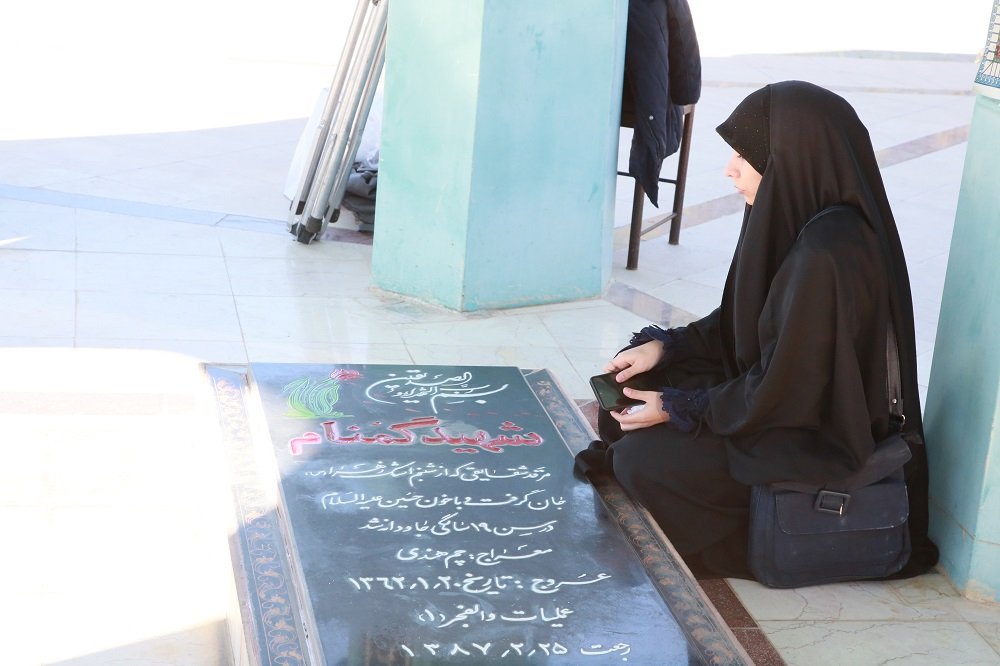 بسم رب الشهداء و الصدیقین
شهید گمنام
مرقد شقایقی که از شبنم اشک زهرا (س)
جان گرفت و با خون حسین علیه السلام
در سن ۱۹ سالگی جاودانه شد
معراج : چم هندی
عروج : تاریخ ۱۳۶۲٫۱٫۲۰
عملیات والفجر (۱)
رجعت ۱۳۸۷٫۲٫۲۵